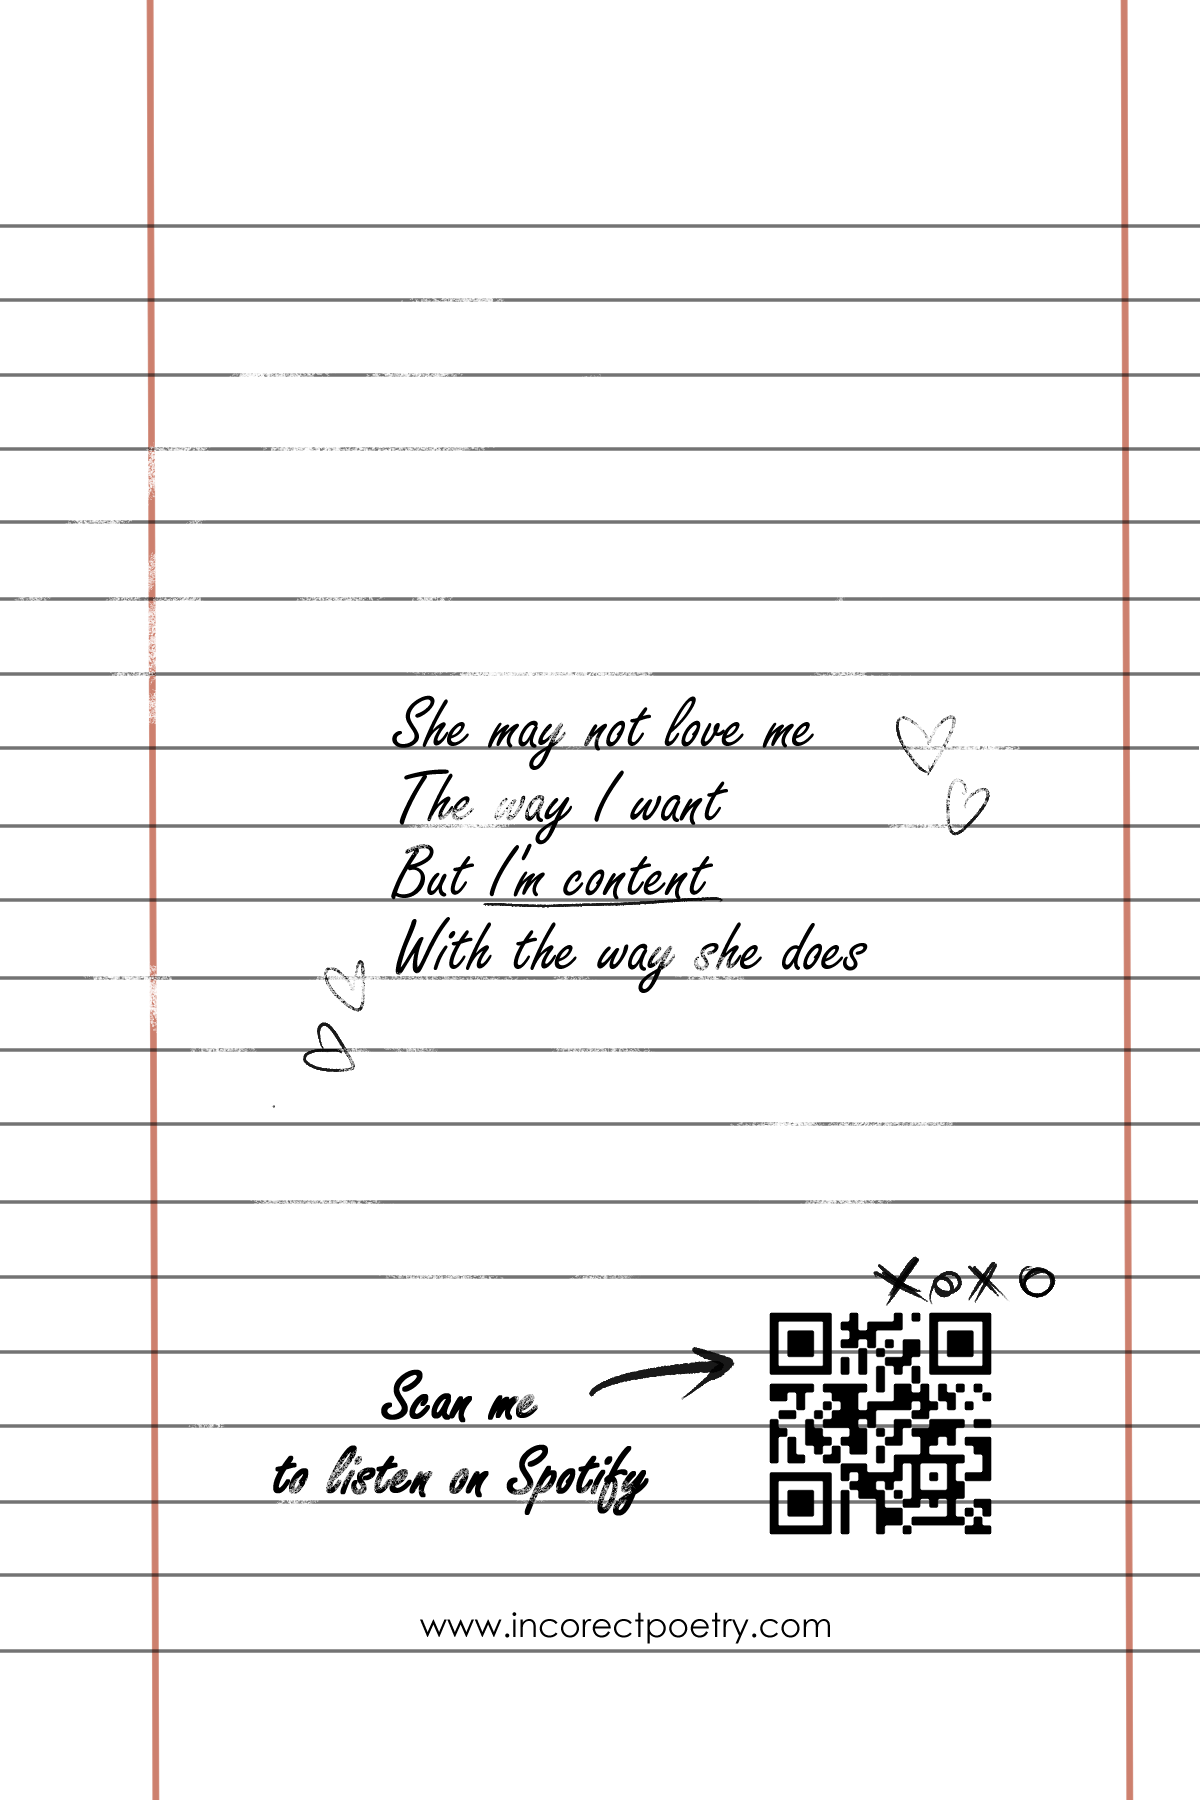 She may not love me
The way I want
But I'm content
With the way she does
XOXO
Scan me
to listen on Spotify
www.incorectpoetry.com